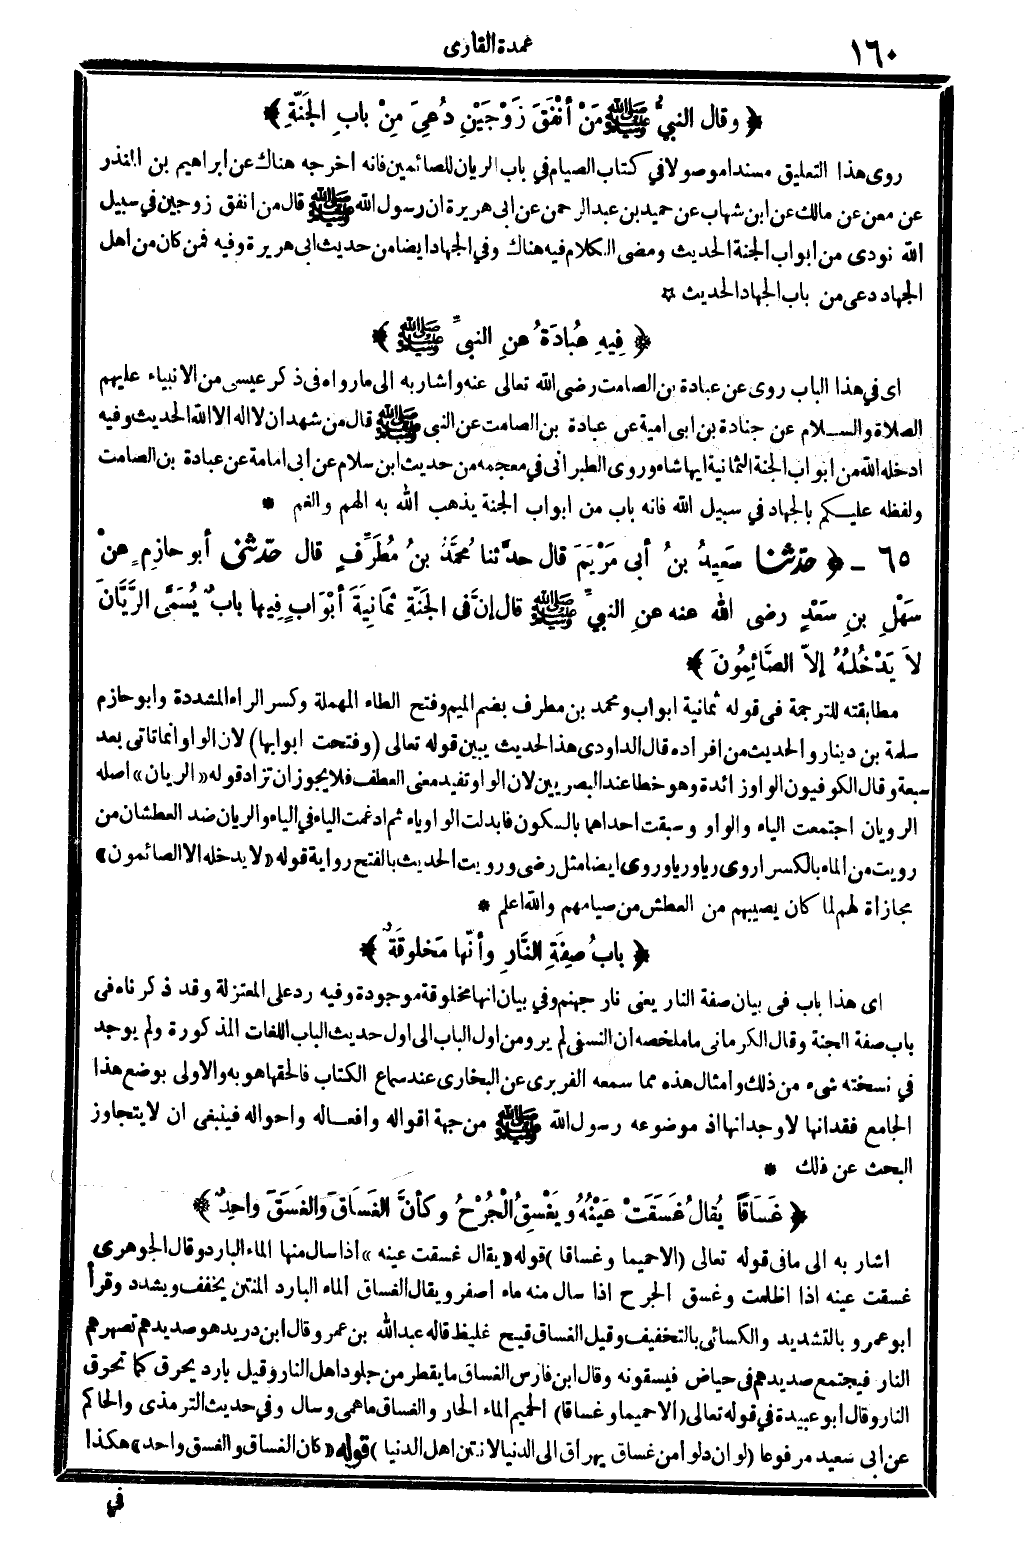 ١٦٠
عمدة القارى
﴿ وقال النبيُّ ﷺ مَنْ أنْفَقَ زَوْجَيْنِ دُعِيَ مِنْ بابِ الجَنَّةِ ﴾
روى هذا التعليق مسندا موصولا في كتاب الصيام في باب الريان للصائمين فانه اخرجه هناك عن ابراهيم بن المنذر
عن معن عن مالك عن ابن شهاب عن حميد بن عبد الرحمن عن ابى هريرة ان رسول الله ﷺ قال من انفق زوجين في سبيل
الله نودى من ابواب الجنة الحديث ومضى الكلام فيه هناك وفي الجهاد ايضا من حديث ابى هريرة وفيه فمن كان من اهل
الجهاد دعى من باب الجهاد الحديث ☆
﴿ فِيهِ عُبادَةُ عنِ النبىِّ ﷺ ﴾
اى في هذا الباب روى عن عبادة بن الصامت رضى الله تعالى عنه واشار به الى ما رواه فى ذكر عيسى من الانبياء عليهم
الصلاة والسلام عن جنادة بن ابى امية عن عبادة بن الصامت عن النبى ﷺ قال من شهد ان لا اله الا الله الحديث وفيه
ادخله الله من ابواب الجنة الثمانية ايها شاء وروى الطبرانى في معجمه من حديث ابن سلام عن ابى امامة عن عبادة بن الصامت
ولفظه عليكم بالجهاد في سبيل الله فانه باب من ابواب الجنة يذهب الله به الهم والغم *
٦٥ - ﴿ حدّثنا سَعِيدُ بنُ أبى مَرْيَمَ قال حدَّثنا مُحَمَّدُ بنُ مُطَرِّفٍ قال حدّثنى أبو حازِمٍ عنْ
سَهْلِ بنِ سَعْدٍ رضى الله عنه عنِ النبيِّ ﷺ قال إنَّ فى الجَنَّةِ ثمَانِيَةَ أبْوَابٍ فِيها بابٌ يُسَمَّى الرَّيَّانَ
لاَ يَدْخُلُهُ إلاَّ الصَّائِمُونَ ﴾
مطابقته للترجمة فى قوله ثمانية ابواب ومحمد بن مطرف بضم الميم وفتح الطاء المهملة وكسر الراء المشددة وابو حازم
سلمة بن دينار والحديث من افراده قال الداودى هذا الحديث يبين قوله تعالى (وفتحت ابوابها) لان الواو انما تاتى بعد
سبعة وقال الكوفيون الواو زائدة وهو خطا عند البصريين لان الواو تفيد معنى العطف فلا يجوز ان تزاد قوله «الريان» اصله
الرويان اجتمعت الياء والواو وسبقت احداهما بالسكون فابدلت الواو ياء ثم ادغمت الياء في الياء والريان ضد العطشان من
رويت من الماء بالكسر اروى ريا وريا وروى ايضا مثل رضى ورويت الحديث بالفتح رواية قوله «لا يدخله الا الصائمون»
مجازاة لهم لما كان يصيبهم من العطش من صيامهم والله اعلم *
﴿ بابُ صِفَةِ النَّارِ وأنّها مَخلوقَةٌ ﴾
اى هذا باب فى بيان صفة النار يعنى نار جهنم وفي بيان انها مخلوقة موجودة وفيه رد على المعتزلة وقد ذكرناه فى
باب صفة الجنة وقال الكرمانى ما ملخصه ان النسفى لم يرو من اول الباب الى اول حديث الباب اللغات المذكورة ولم يوجد
في نسخته شىء من ذلك وامثال هذه مما سمعه الفربرى عن البخارى عند سماع الكتاب فالحقها هو به والاولى بوضع هذا
الجامع فقدانها لا وجدانها اذ موضوعه رسول الله ﷺ من جهة اقواله وافعاله واحواله فينبغى ان لا يتجاوز
البحث عن ذلك *
﴿ غَسَاقًا يُقالُ غَسَقَتْ عَيْنُهُ ويَغْسِقُ الْجُرْحُ وكأنَّ الغَسَاقَ والغَسَقَ واحِدٌ ﴾
اشار به الى ما فى قوله تعالى (الا حميما وغساقا) قوله «يقال غسقت عينه» اذا سال منها الماء البارد وقال الجوهرى
غسقت عينه اذا اظلمت وغسق الجرح اذا سال منه ماء اصفر ويقال الغساق الماء البارد المنتن يخفف ويشدد وقرأ
ابو عمرو بالتشديد والكسائى بالتخفيف وقيل الغساق قيح غليظ قاله عبد الله بن عمرو وقال ابن دريد هو صديدهم تصهرهم
النار فيجتمع صديدهم فى حياض فيسقونه وقال ابن فارس الغساق ما يقطر من جلود اهل النار وقيل بارد يحرق كما تحرق
النار وقال ابو عبيدة في قوله تعالى (الا حميما وغساقا) الحميم الماء الحار والغساق ما همى وسال وفي حديث الترمذى والحاكم
عن ابى سعيد مرفوعا (لو ان دلوا من غساق يهراق الى الدنيا لانتن اهل الدنيا) قوله «كان الغساق والغسق واحد» هكذا
في